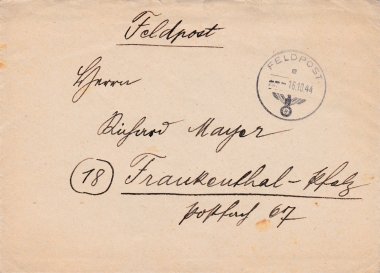 Feldpost
FELDPOST
a
16.10.44
Herrn
Richard Mayer
18 Frankenthal-Pfalz
Postfach 67